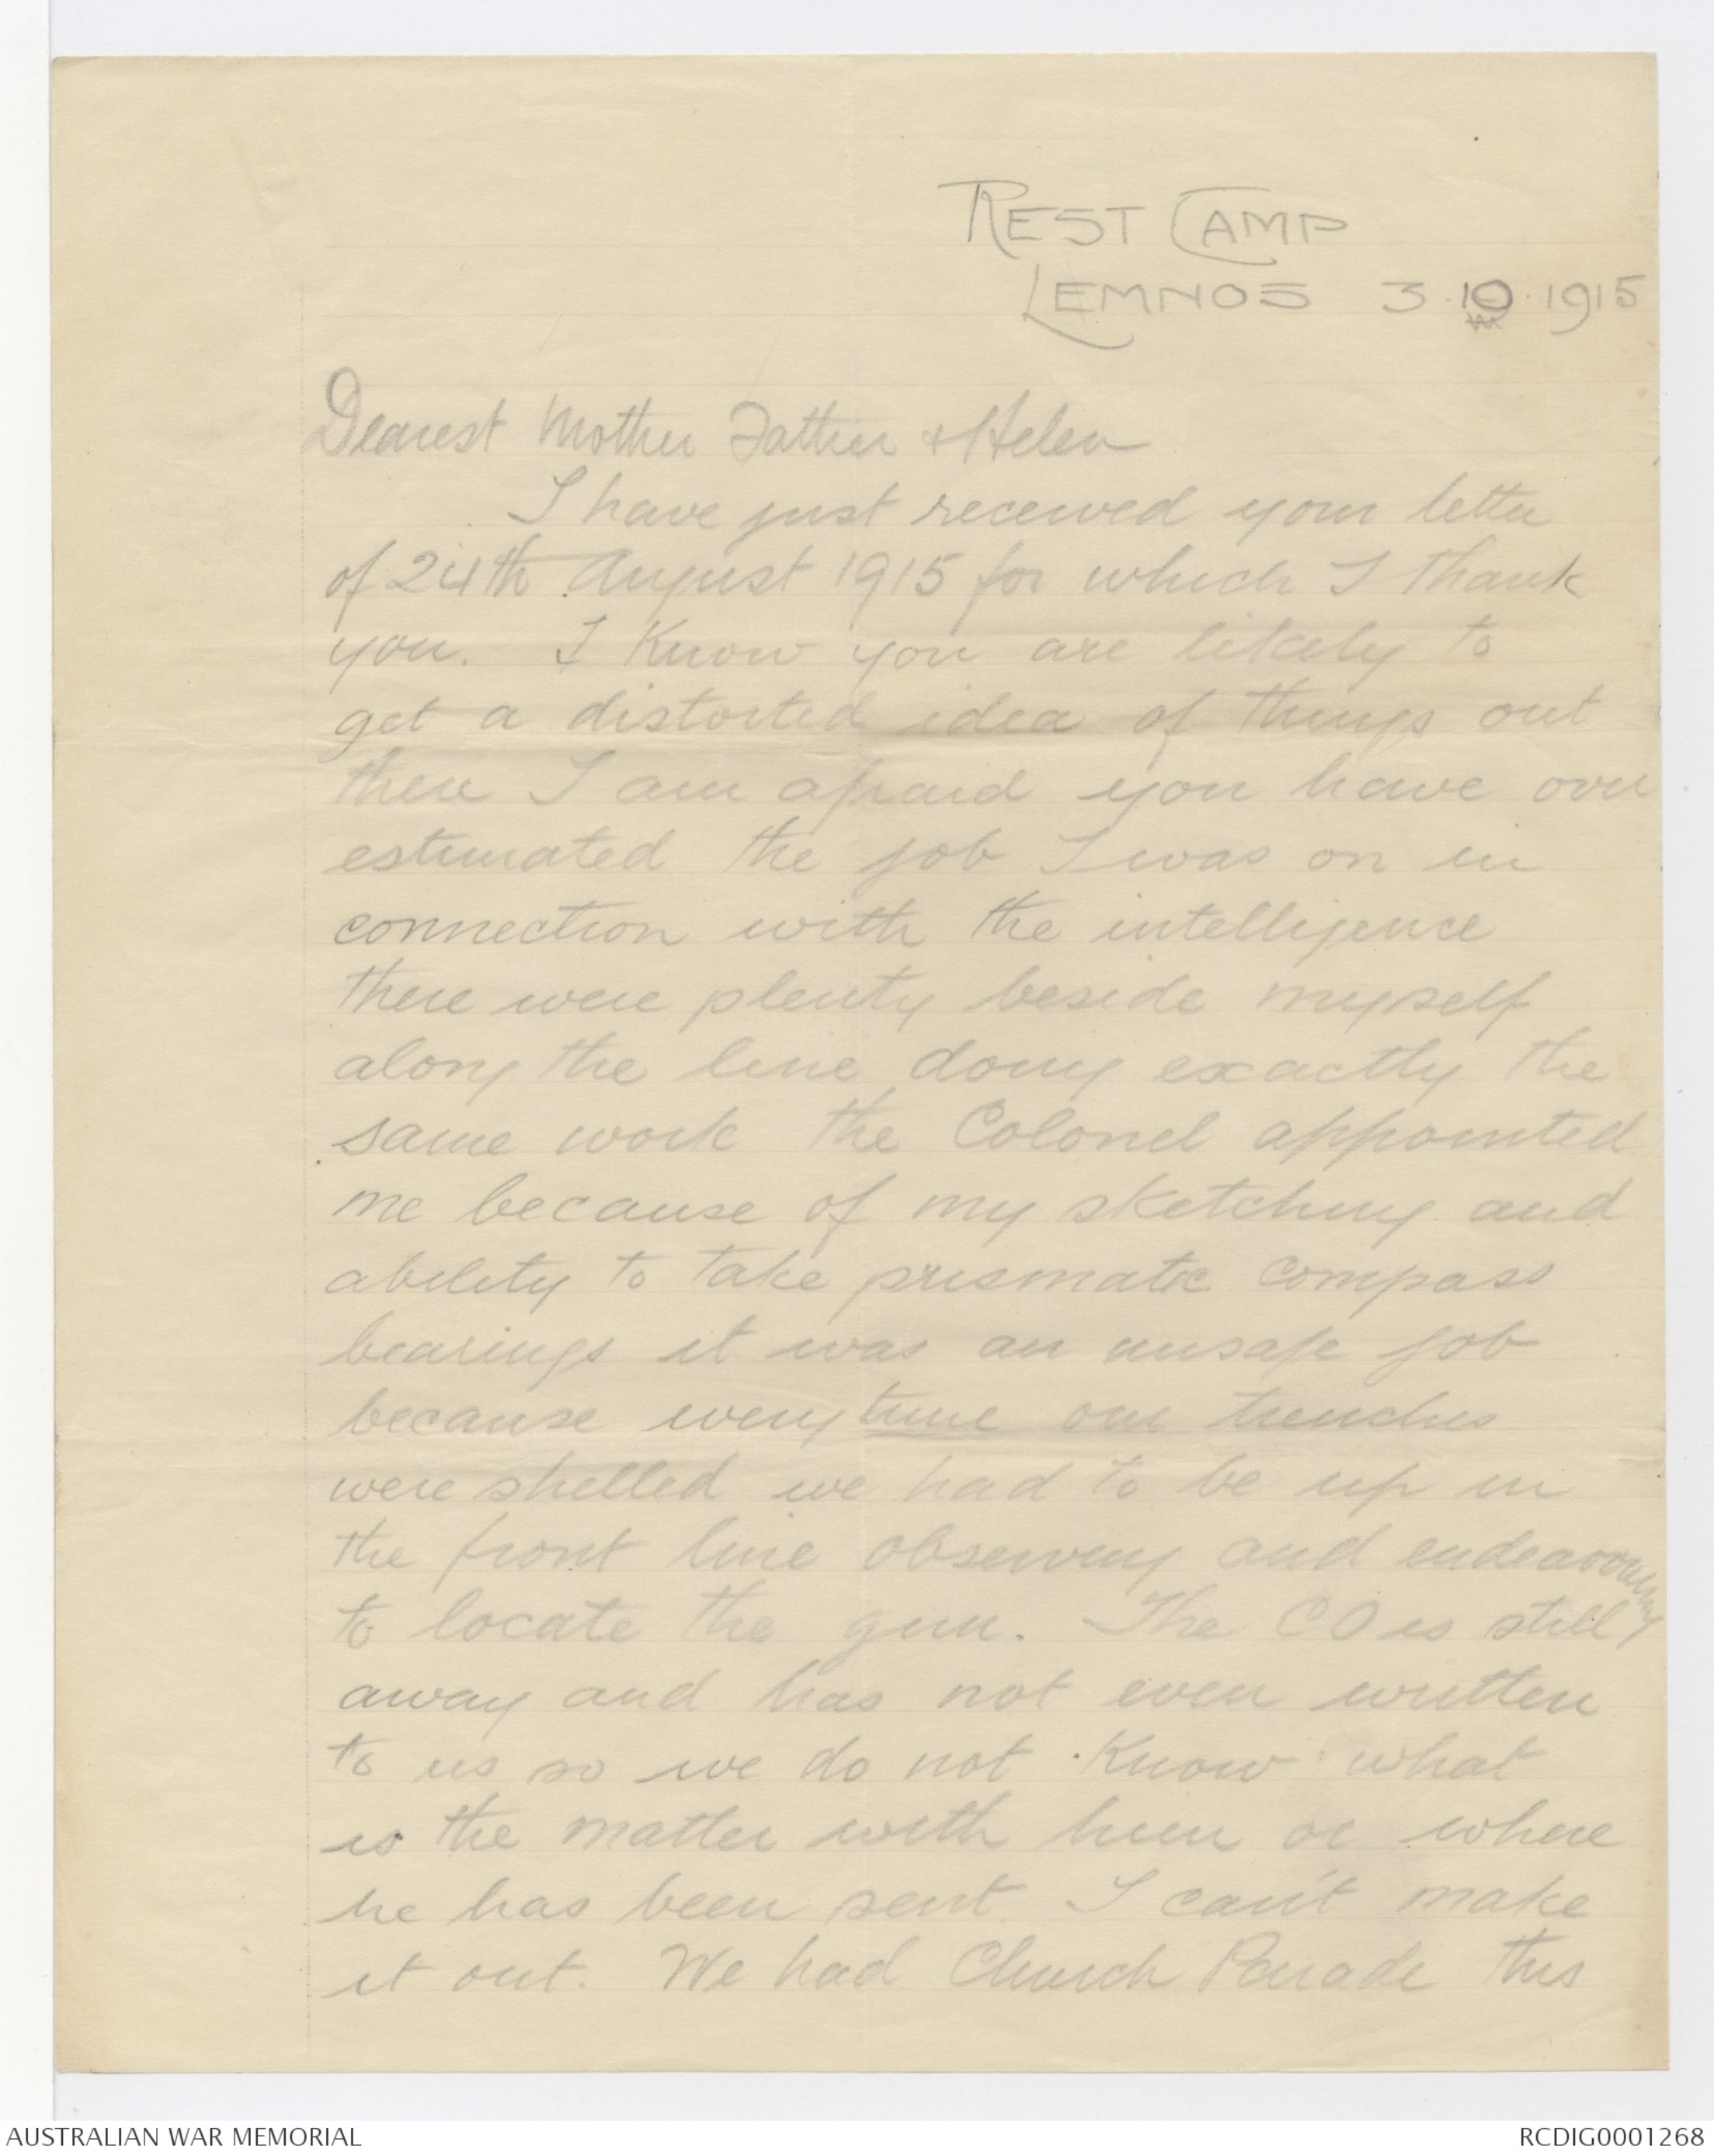 REST CAMP
LEMNOS 3.10.1915
Dearest Mother Father & Helen
I have just received your letter
of 24th August 1915 for which I thank
you. I Know you are likely to
get a distorted idea of things out
there I am afraid you have over
estimated the job I was on in
connection with the intelligence
there were plenty beside myself
along the line doing exactly the
same work the Colonel appointed
me because of my sketching and
ability to take prismatic compass
bearings it was an unsafe job
because every time our trenches
were shelled we had to be up in
the front line observing and endeavouring
to locate the gun. The CO is still
away and has not even written
to us so we do not Know what
is the matter with him or where
he has been sent I can't make
it out. We had Church Parade this
AUSTRALIAN WAR MEMORIAL
RCDIG0001268